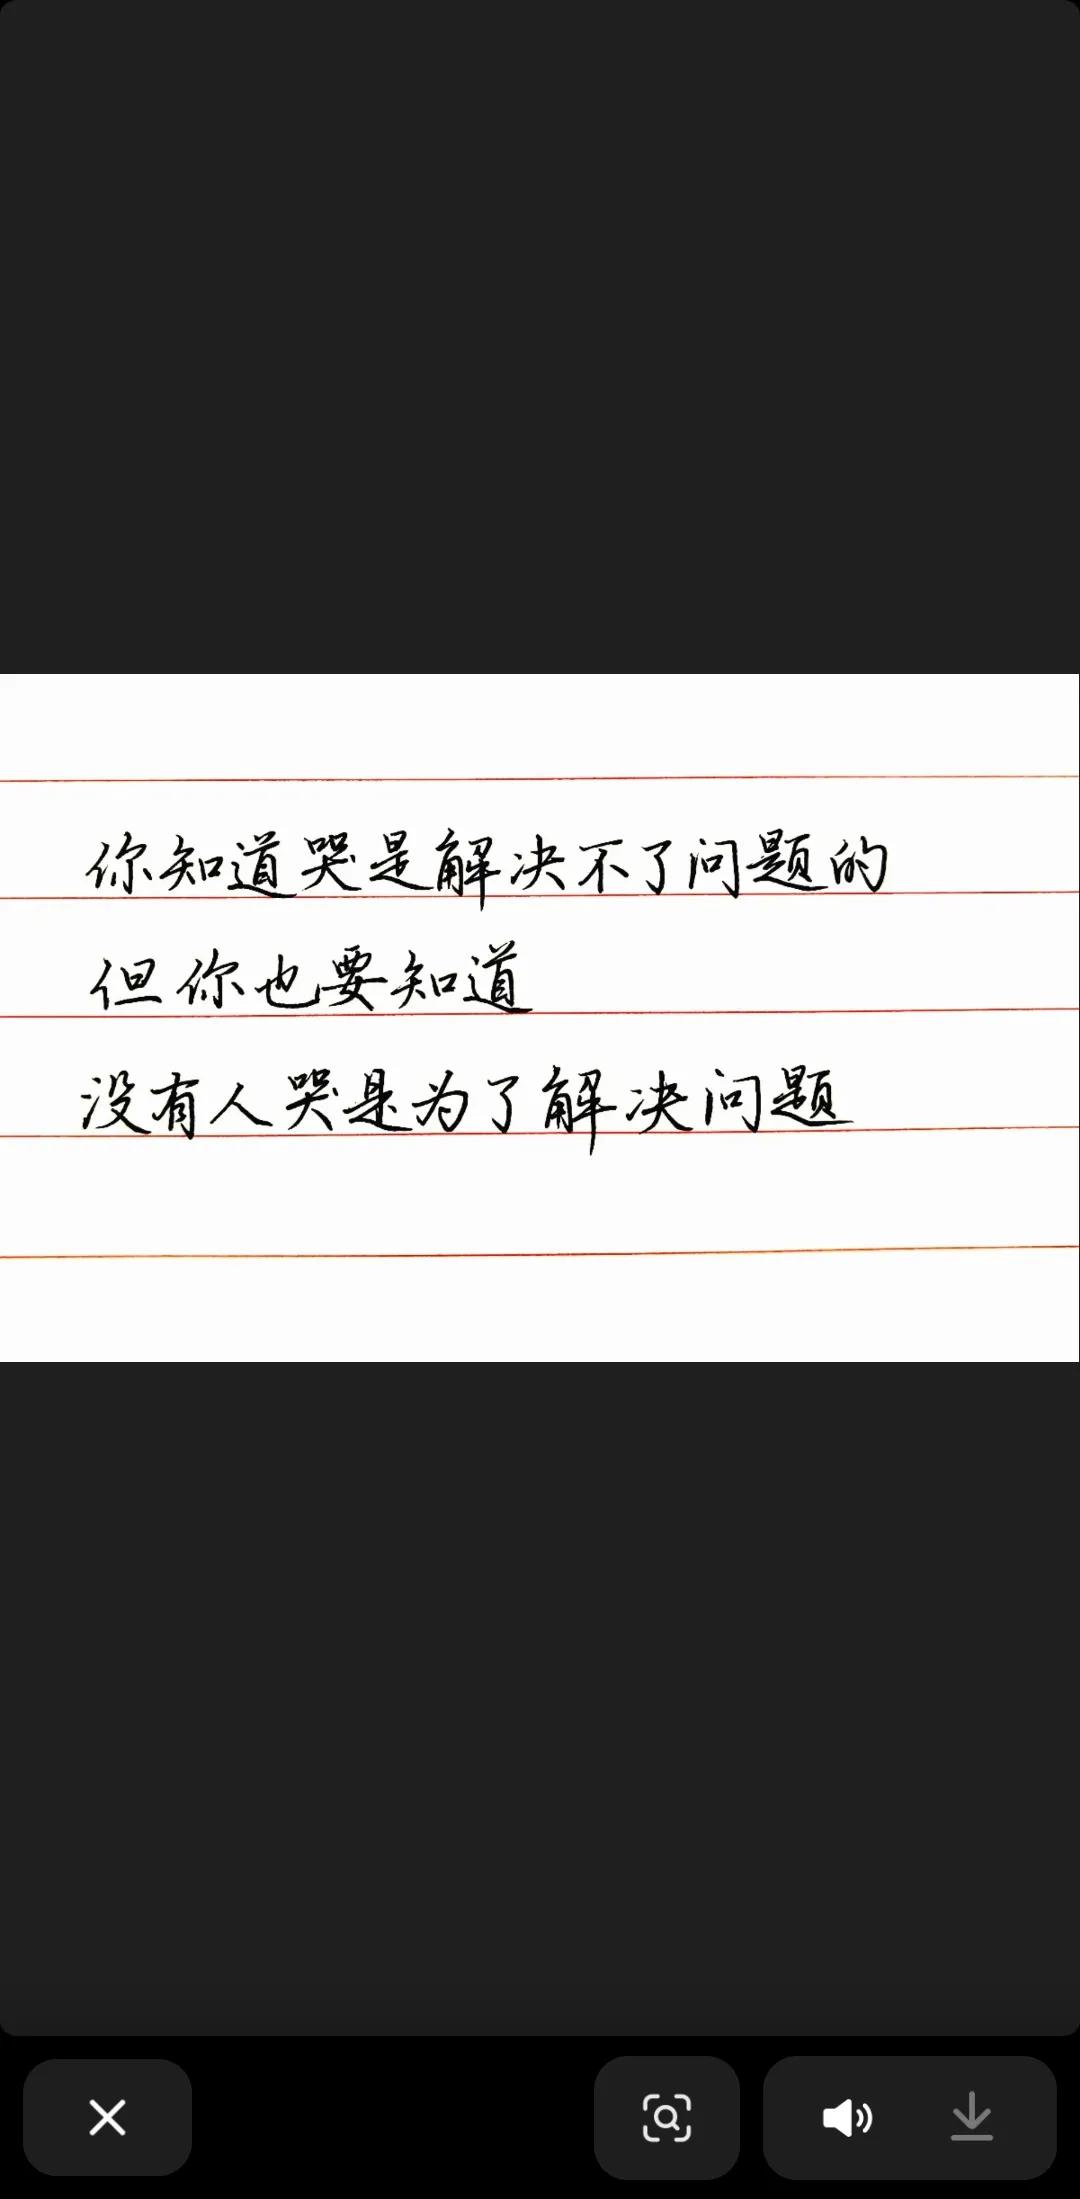 你知道哭是解决不了问题的
但你也要知道
没有人哭是为了解决问题